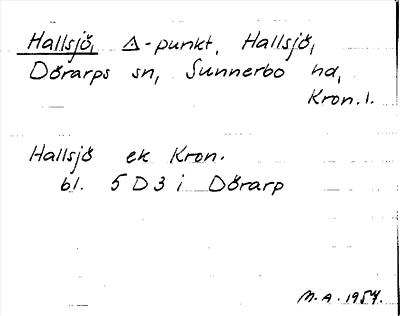 Hallsjö, △-punkt, Hallsjö,
Dörarps sn, Sunnerbo hd,
Kron.l.
Hallsjö ek Kron.
bl. 5 D 3 i Dörarp
M.A. 1954.